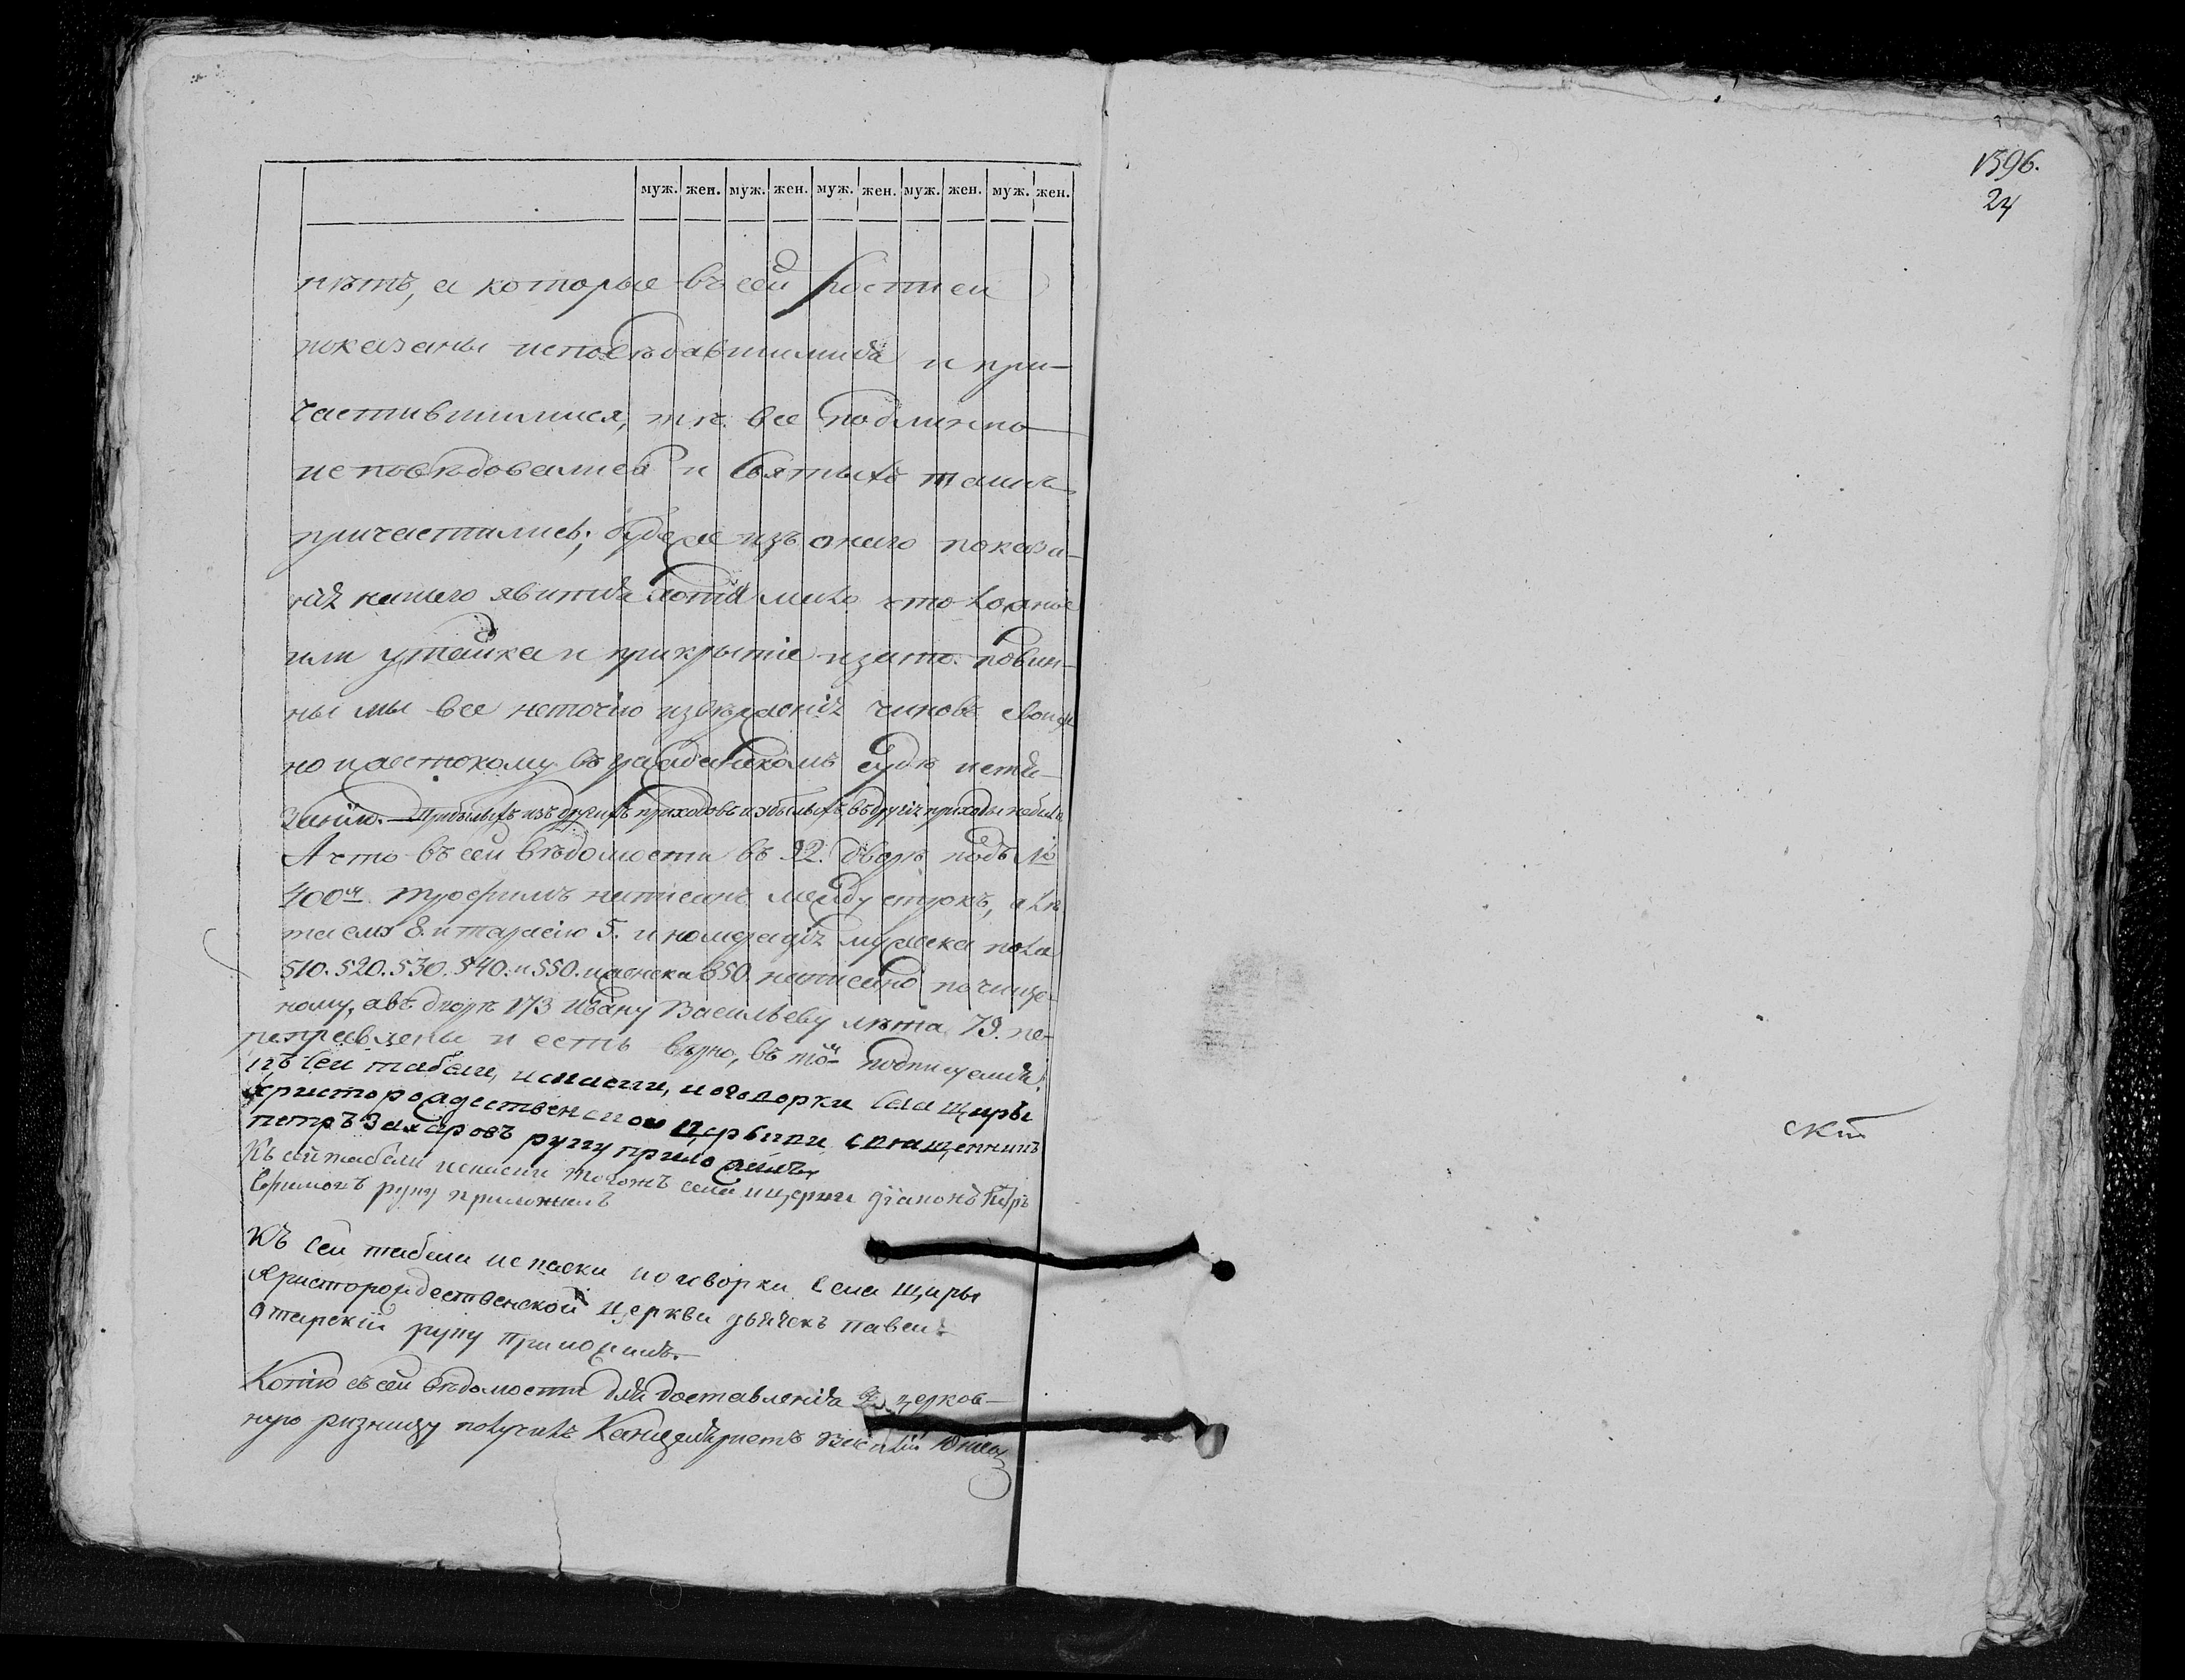 муж. жен. муж. жен. муж. жен. муж. жен. муж. жен.
1396.
24
нѣтъ, а которые въ сей росписи
показаны исповѣдавшимися и при-
частившимися, тѣ все подлинно
исповѣдовались и Святыхъ таинъ
причастились; буде же изъ онаго показа-
нія нашего явится хотя мало что ложное
или утайка и прикрытіе и за то повин-
ны мы все неточію изверженія чиновъ своихъ
но и жестокому въ гражданскомъ судѣ истя-
занію. Прибылыхъ изъ другихъ приходовъ и убылыхъ въ другія приходы небыло
А что въ сей вѣдомости въ 92. дворѣ подъ №
400м трофимъ написанъ между строкъ, а
8. и тарасію 5. и номерація мужеска пола
510. 520. 530. 540. и 550. и женска 350. написано по чище-
ному, авъ дворѣ 173 Ивану Васильеву лѣта 79. пе-
реправлены и есть вѣрно, въ томъ подписуемся.
Къ сей табели, испаски, иоговорки села щиры
христорождественской церькви священникъ
петръ Захаровъ руку приложилъ
Къ сей табели испаски тогожъ села щиры діаконъ
Ефимовъ руку приложилъ
Къ сей табели испаски иоговорки села щиры
христорождественской церкви дьячекъ павелъ
руку приложилъ.
Копію съ сей вѣдомости для доставленія въ церков-
ную ризницу получилъ Канцеляристъ
скп